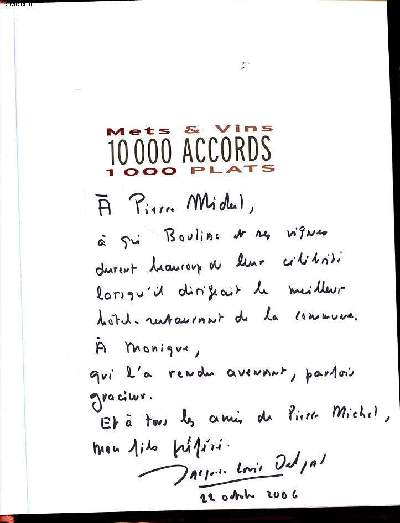 Mets & Vins
10 000 ACCORDS
1 000 PLATS
À Pierre Michel,
à qui Bouliac et ses vignes
durent beaucoup de leur célébrité
lorsqu'il dirigeait le meilleur
hôtel-restaurant de la commune.
À Monique,
qui l'a rendu avenant, parfois
gracieux.
Et à tous les amis de Pierre Michel,
mon fils préféré.
Jacques-Louis Delpal
22 octobre 2006